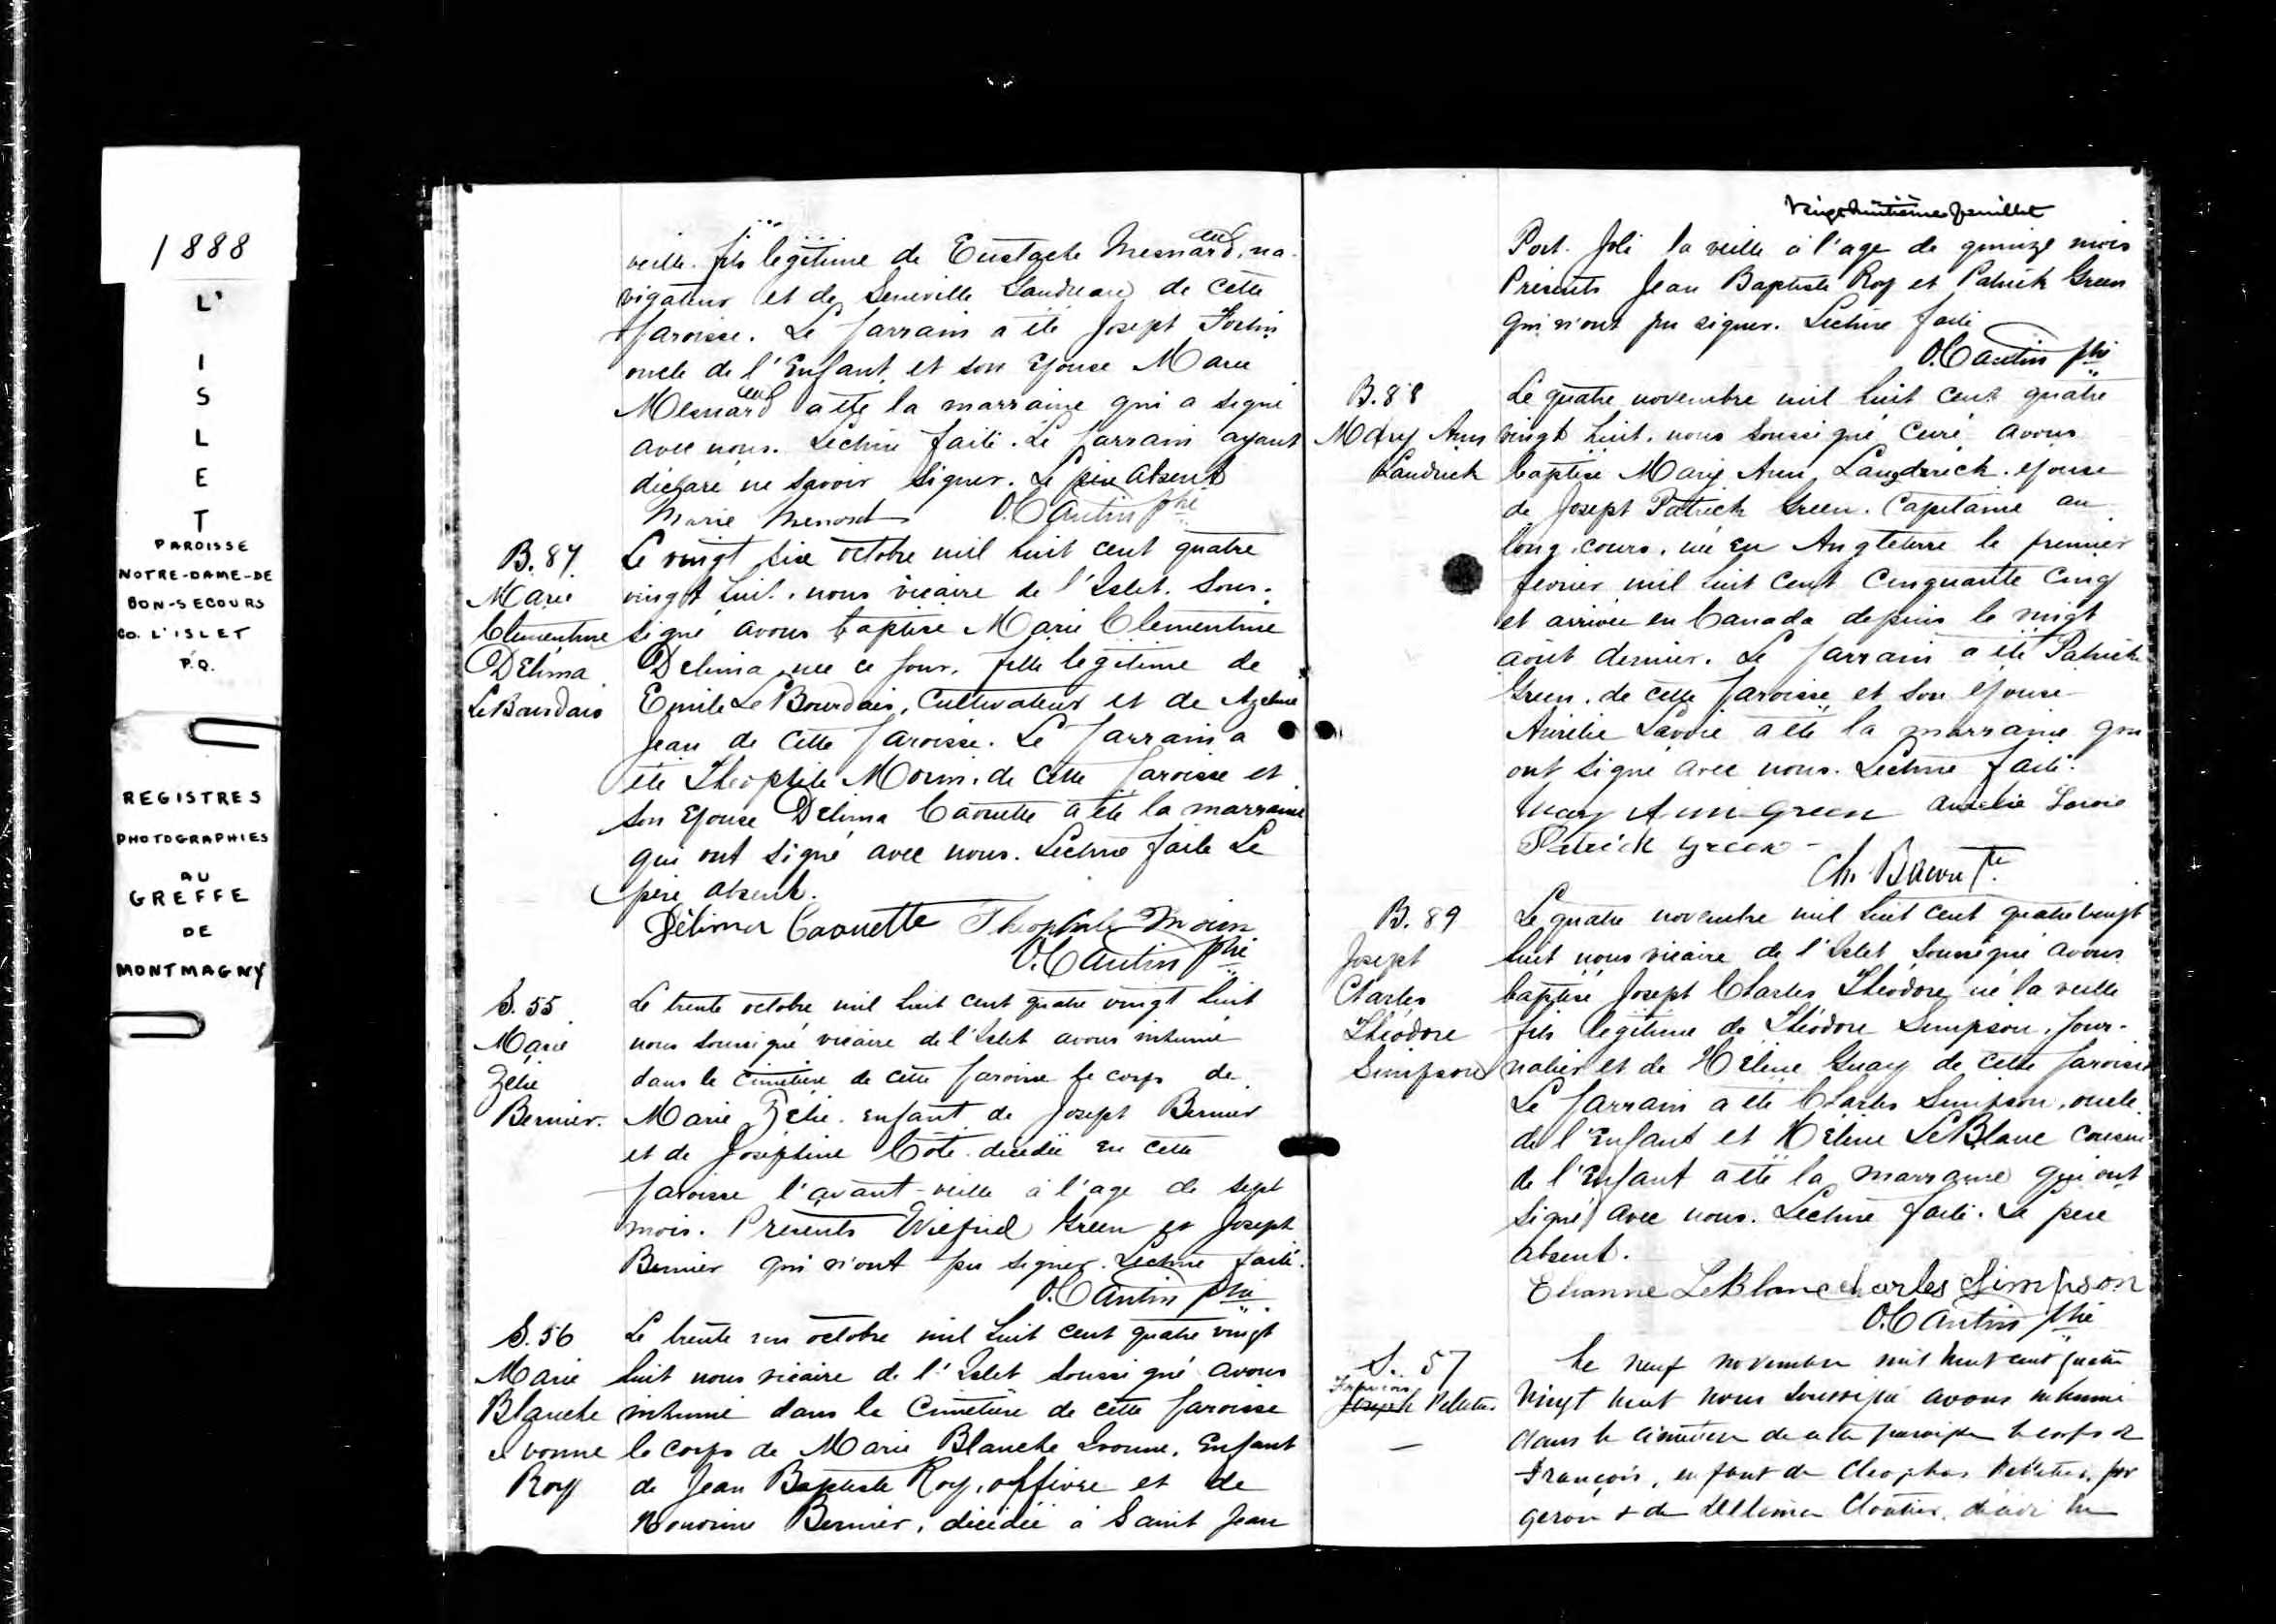 1888
L'
I
S
L
E
T
PAROISSE
NOTRE-DAME-DE
BON-SECOURS
CO. L'ISLET
P.Q.
REGISTRES
PHOTOGRAPHIES
AU
GREFFE
DE
MONTMAGNY
veille. fils legitime de Eustache Mesnard, na-
vigateur et de Seneville Landreau de cette
paroisse. Le parrain a été Joseph Fortin
oncle de l'Enfant et son Epouse Marie
Mesnard a été la marraine qui a signé
avec nous. Lecture faite. Le parrain ayant
déclaré ne savoir signer. Le père absent
Marie Menard O. Cantin ptre
B. 87.
Marie
Clementine
Délima
LeBourdais
Le vingt six octobre mil huit cent quatre
vingt huit. nous vicaire de l'Islet. Sous-
signé avons baptisé Marie Clementine
Delima née ce jour, fille legitime de
Emile LeBourdais, Cultivateur et de Azeline
Jean de cette paroisse. Le parrain a
été Théophile Morin. de cette paroisse et
son Epouse Delima Caouette a été la marraine
qui ont signé avec nous. Lecture faite Le
père absent.
Délima Caouette Theophile Morin
O. Cantin ptre
S. 55
Marie
Zélie
Bernier.
Le trente octobre mil huit cent quatre vingt huit
nous soussigné vicaire de l'Islet avons inhumé
dans le cimetière de cette paroisse le corps de
Marie Zélie. enfant de Joseph Bernier
et de Joséphine Côté. décédée en cette
paroisse l'avant-veille à l'age de sept
mois. Présents Wilfrid Green et Joseph
Bernier qui n'ont pu signer. Lecture faite.
O. Cantin ptre
S. 56
Marie
Blanche
Ivonne
Roy
Le trente un octobre mil huit cent quatre vingt
huit nous vicaire de l'Islet soussigné avons
inhumé dans le Cimetière de cette paroisse
le corps de Marie Blanche Ivonne. Enfant
de Jean Baptiste Roy, et de
Bernier, décédée à Saint Jean
Vingt huitième feuillet
Port. Joli la veille à l'age de quinze mois
Présents Jean Baptiste Roy et Patrick Green
qui n'ont pu signer. Lecture faite
O. Cantin ptre
B. 88
Mary Ann
Landrick
Le quatre novembre mil huit cent quatre
vingt huit. nous soussigné Curé avons
baptisé Mary Ann Landrick. epouse
de Joseph Patrick Green. Capitaine au
long. cours. née en Angleterre le premier
fevrier mil huit cent cinquante cinq
et arrivée en Canada depuis le vingt
août dernier. Le parrain a été Patrick
Green. de cette paroisse et son epouse
Aurélie Lavoie a été la marraine qui
ont signé avec nous. Lecture faite.
Mary Ann Green Aurelie Lavoie
Patrick Green
Ch. Bacon
B. 89
Joseph
Charles
Théodore
Simpson
Le quatre novembre mil huit cent quatre vingt
huit nous vicaire de l'Islet soussigné avons
baptisé Joseph Charles Théodore né la veille
fils legitime de Théodore Simpson, jour-
nalier et de Hélène Guay de cette paroisse
Le parrain a été Charles Simpson, oncle
de l'Enfant et Hélène LeBlanc cousine
de l'Enfant a été la marraine qui ont
signé avec nous. Lecture faite. Le père
absent.
LeBlanc Charles Simpson
O. Cantin ptre
S. 57
François
Joseph Pelletier
Le neuf novembre mil huit cent quatre
vingt huit nous soussigné avons inhumé
dans le cimetière de cette paroisse le corps de
François, enfant de Cleophas Pelletier, for
geron & de Cloutier, décédé